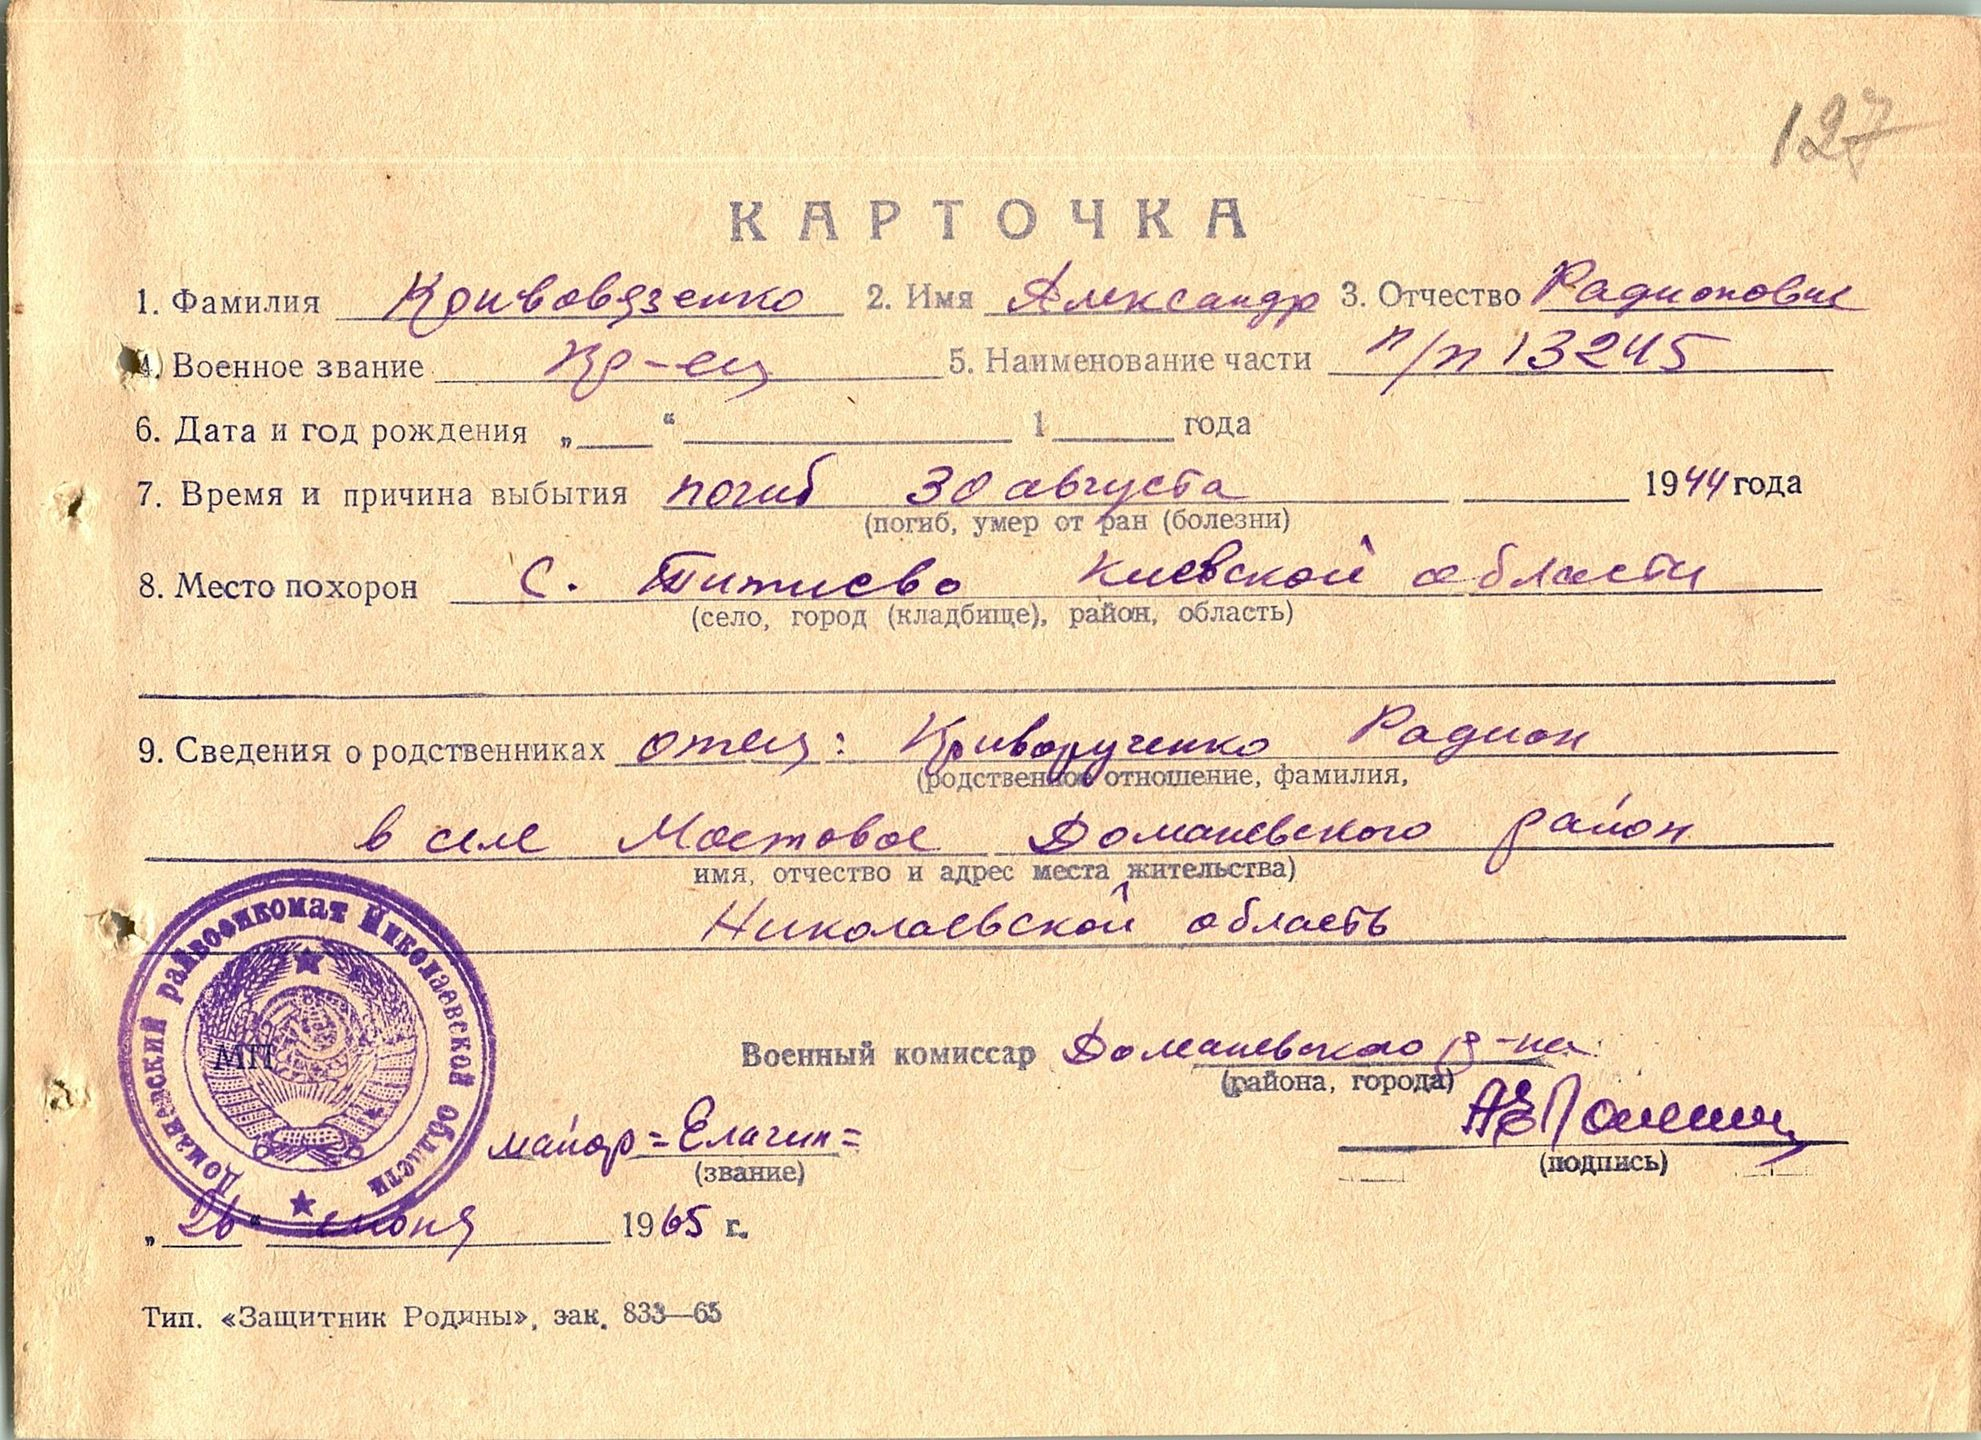 127
КАРТОЧКА
1. Фамилия Кривовязенко 2. Имя Александр 3. Отчество Радионович
4. Военное звание кр-ец 5. Наименование части п/п 13245
6. Дата и год рождения „ “ 1 года
7. Время и причина выбытия погиб 30 августа 1944 года
(погиб, умер от ран (болезни)
8. Место похорон с. Тижиево Киевской области
(село, город (кладбище), район, область)
9. Сведения о родственниках отец: Криворученко Радион
(родственное отношение, фамилия,
в селе Мостовое Доманевского район
имя, отчество и адрес места жительства)
Николаевской область
Доманевский райвоенкомат Николаевской области
МП
Военный комиссар Доманевского р-на
(района, города)
майор =Елагин=
(звание)
(подпись)
„26“ июня 1965 г.
Тип. «Защитник Родины», зак. 833—65